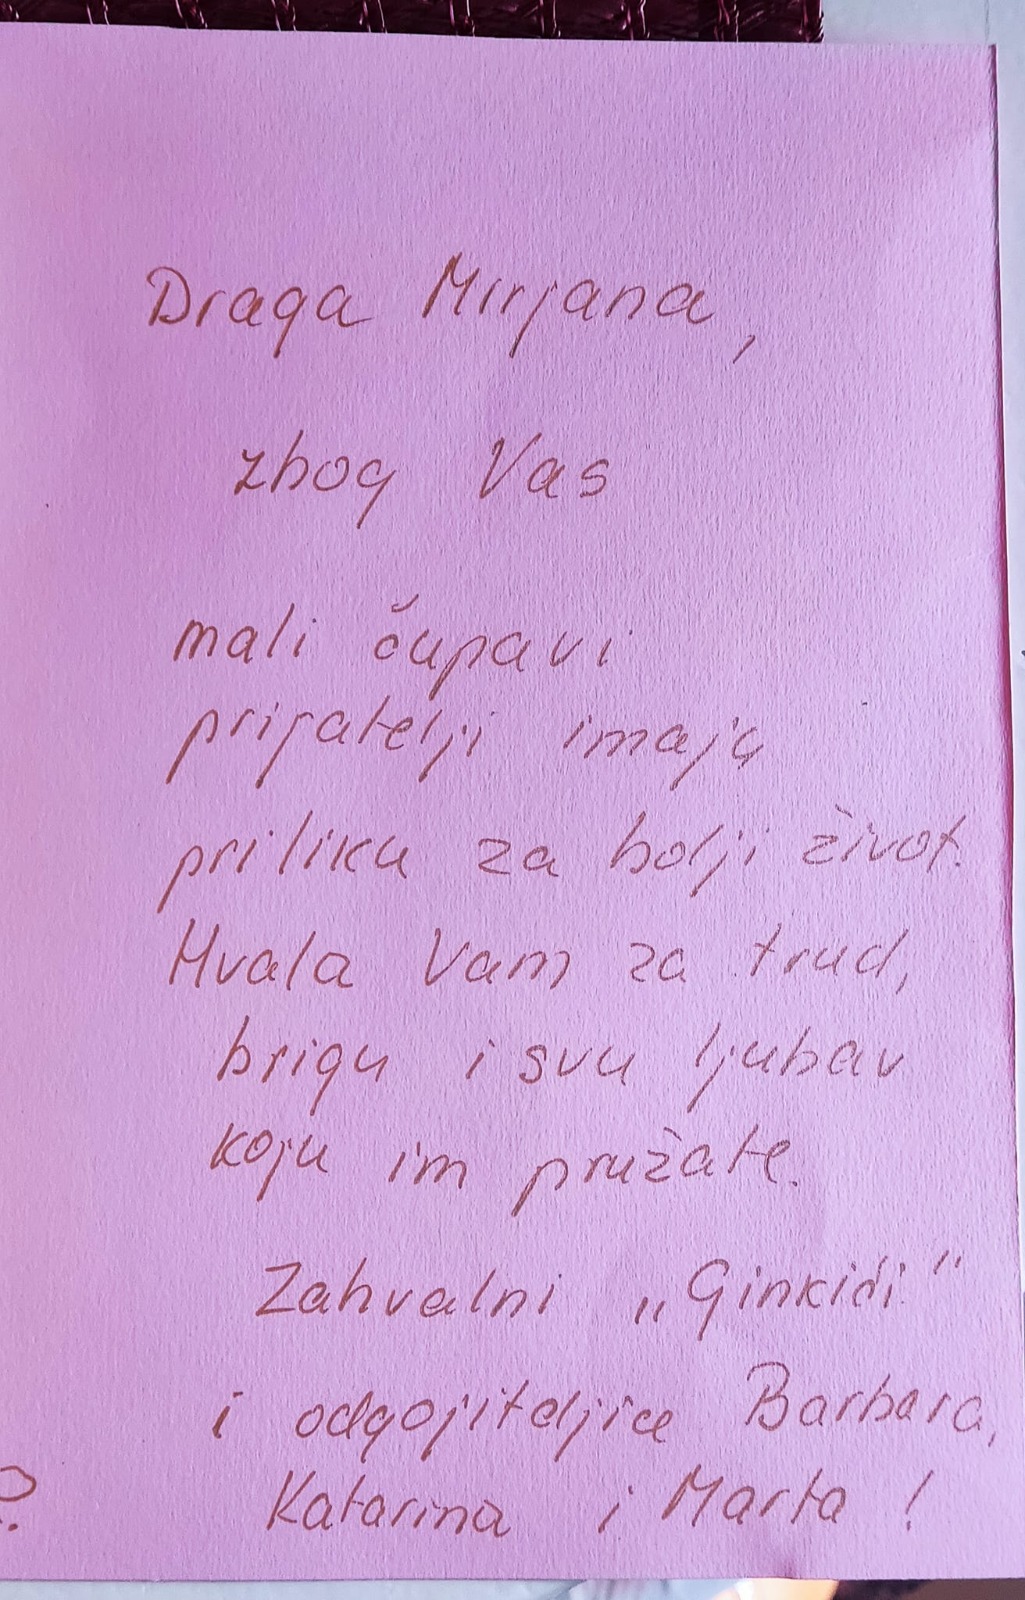 Draga Mirjana,
zbog Vas
mali čupavi
prijatelji imaju
priliku za bolji život.
Hvala Vam za trud,
brigu i svu ljubav
koju im pružate.
Zahvalni „Ginkići"
i odgojiteljice Barbara,
Katarina i Marta !